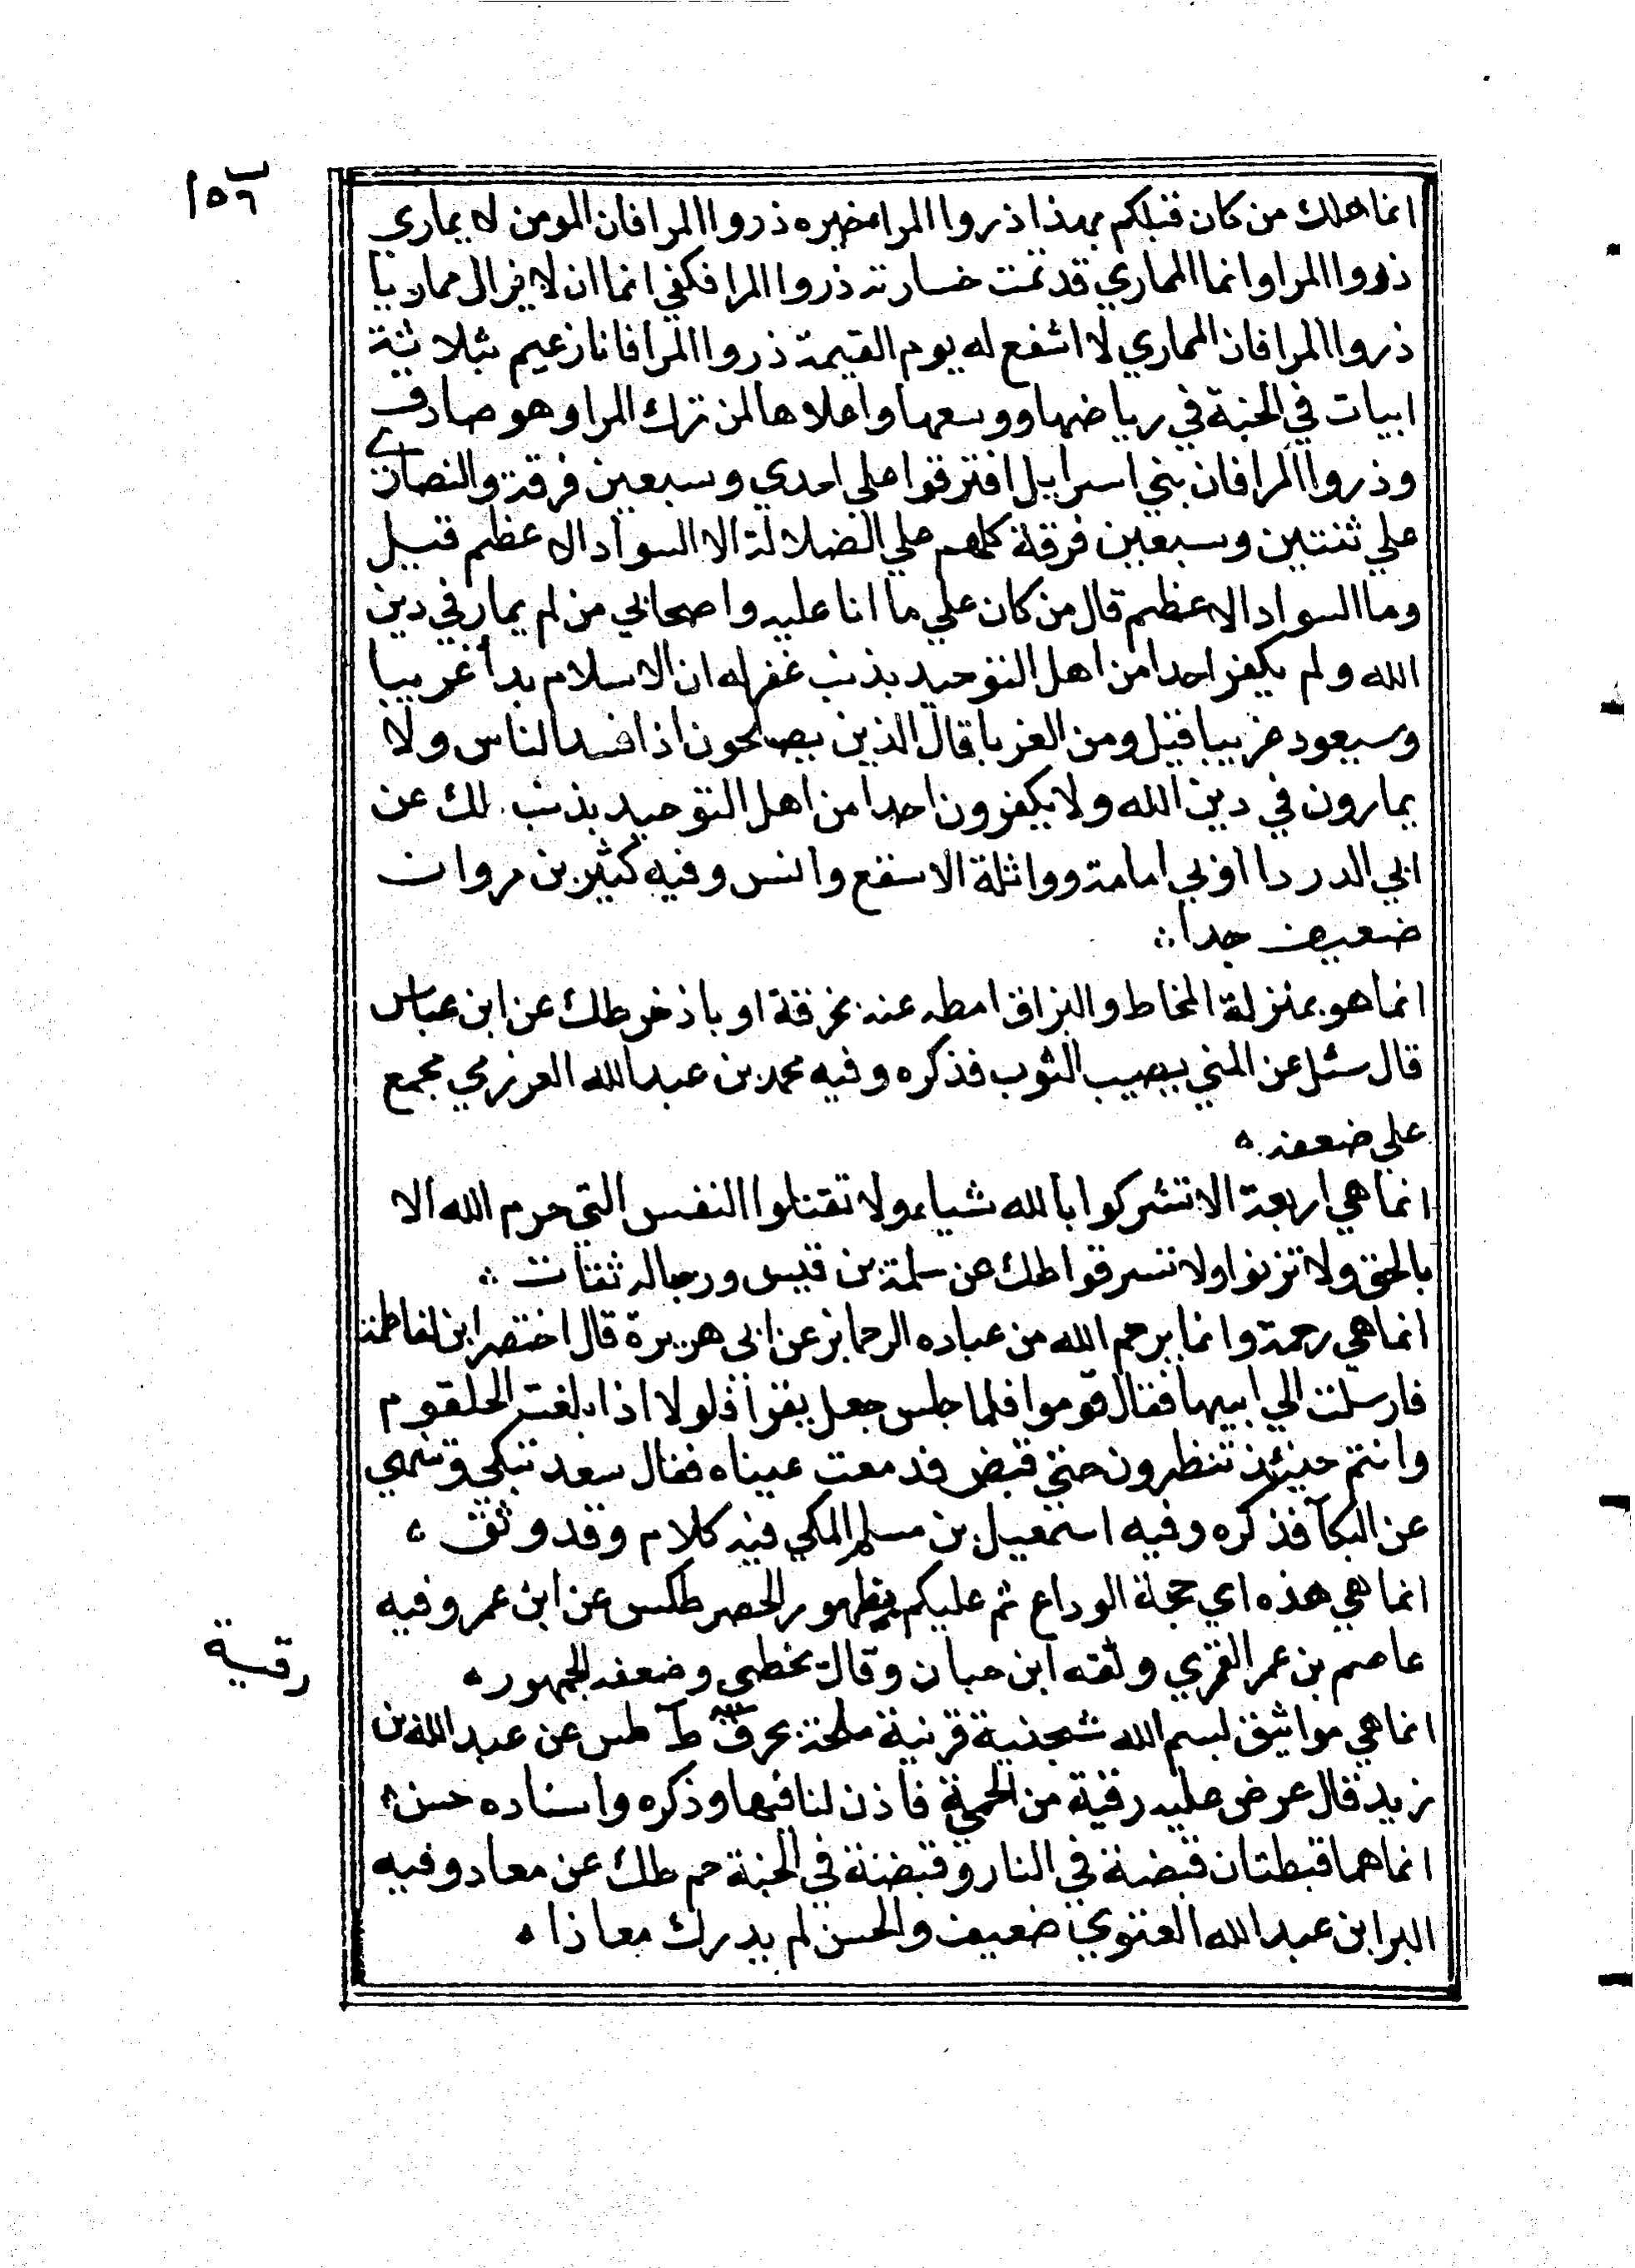 ١٥٦ ب
انما هلك من كان قبلكم بهذا ذروا المرا لمضيره ذروا المرا فان المومن لا يماري
ذروا المرا وانما المماري قد تمت خسارته ذروا المرا فكفي انما ان لا يزال مماريا
ذروا المرا فان المماري لا اشفع له يوم القيمة ذروا المرا فانا زعيم بثلاثة
ابيات في الجنة في رياضها ووسعها واعلاها لمن ترك المرا وهو صادق
وذروا المرا فان بني اسرايل افترقوا علي احدي وسبعين فرقة والنصاري
علي ثنتين وسبعين فرقة كلهم علي الضلالة الا السواد الاعظم قيل
وما السواد الاعظم قال من كان علي ما انا عليه واصحابي من لم يمار في دين
الله ولم يكفر احدا من اهل التوحيد بذنب غفر له ان الاسلام بدأ غريبا
وسيعود غريبا قيل ومن الغربا قال الذين يصلحون اذا فسد الناس ولا
يمارون في دين الله ولا يكفرون احدا من اهل التوحيد بذنب لك عن
ابي الدردا اوبي امامة وواثلة الاسقع وانس وفيه كثير بن مروان
ضعيف جدا
انما هو بمنزلة المخاط والبزاق امطه عنه بخرقة او باذخر طك عن ابن عباس
قال سئل عن المني يصيب الثوب فذكره وفيه محمد بن عبد الله العرزمي مجمع
علي ضعفه
انما هي اربعة الا تشركوا بالله شياء ولا تقتلوا النفس التي حرم الله الا
بالحق ولا تزنوا ولا تسرقوا طك عن سلمة بن قيس ورجاله ثقات
انما هي رحمة وانما يرحم الله من عباده الرحما بز عن ابي هريرة قال احتضر ابن لفاطمة
فارسلت الي ابيها فقال قوموا فلما جلس جعل يقرأ فلولا اذا بلغت الحلقوم
وانتم حينئذ تنظرون حتي قبض فدمعت عيناه فقال سعد تبكي وتنهي
عن البكآ فذكره وفيه اسمعيل بن مسلم المكي فيه كلام وقد وثق
انما هي هذه اي حجة الوداع ثم عليكم بظهور الحصر طكس عن ابن عمر وفيه
عاصم بن عمر العمري وثقه ابن حبان وقال يخطي وضعفه الجمهور
رقية
انما هي مواثيق لبسم الله شجنية قرنية ملحة بحر طس عن عبد الله بن
زيد قال عرض عليه رقية من الحمة فاذن لنا فيها وذكره واسناده حسن
انما هما قبطتان قبضة في النار وقبضة في الجنة حم طك عن معاد وفيه
البرا بن عبد الله الغنوي ضعيف والحسن لم يدرك معاذا